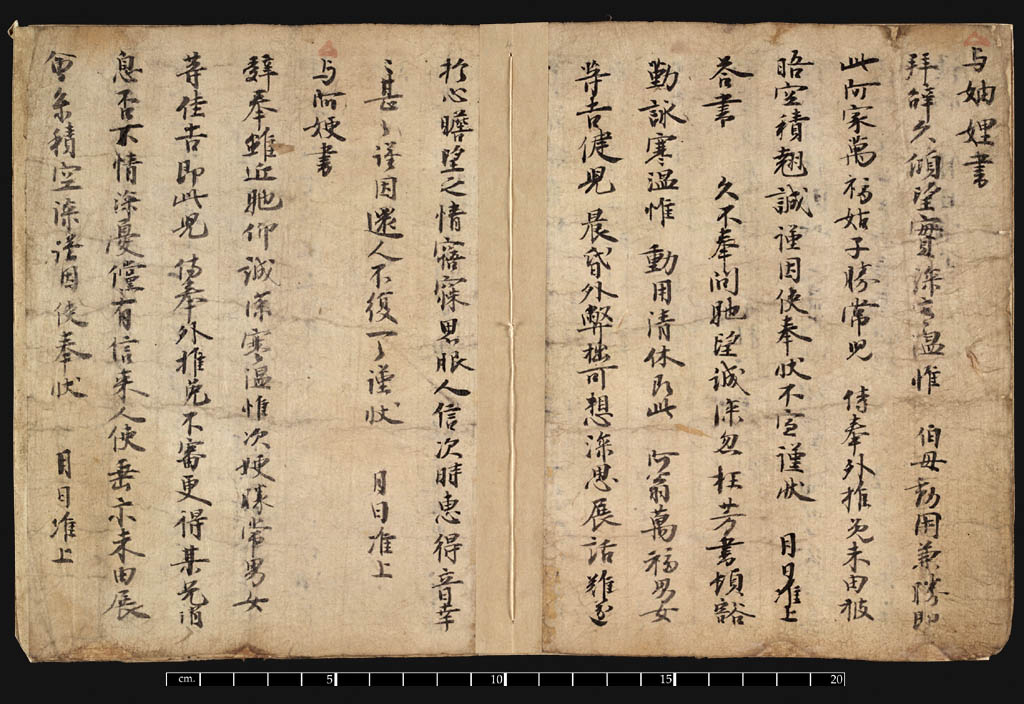 与妯娌書
拜辭久傾望實深之溫惟 伯母動用兼勝即
此阿家萬福姑子勝常兒 侍奉外推免未由披
晤空積翹誠謹因使奉狀不宣謹狀 月日准上
荅書 久不奉問馳望誠深忽枉芳書頓豁
勤詠寒溫惟 動用清休即此 阿翁萬福男女
等吉健兒 晨昏外弊拙可想深思展話難逐
於心瞻望之情寤寐思眼人信次時惠得音幸
〻甚〻謹因還人不復一了謹狀 月日准上
与阿㛐書
辭奉雖近馳仰誠深寒溫惟次㛐勝常男女
等佳吉即此兒 侍奉外推免不審更得某兄消
息否不情深憂儻有信来人使垂示未由展
會条積空深謹因使奉狀 月日准上
cm. 5 10 15 20